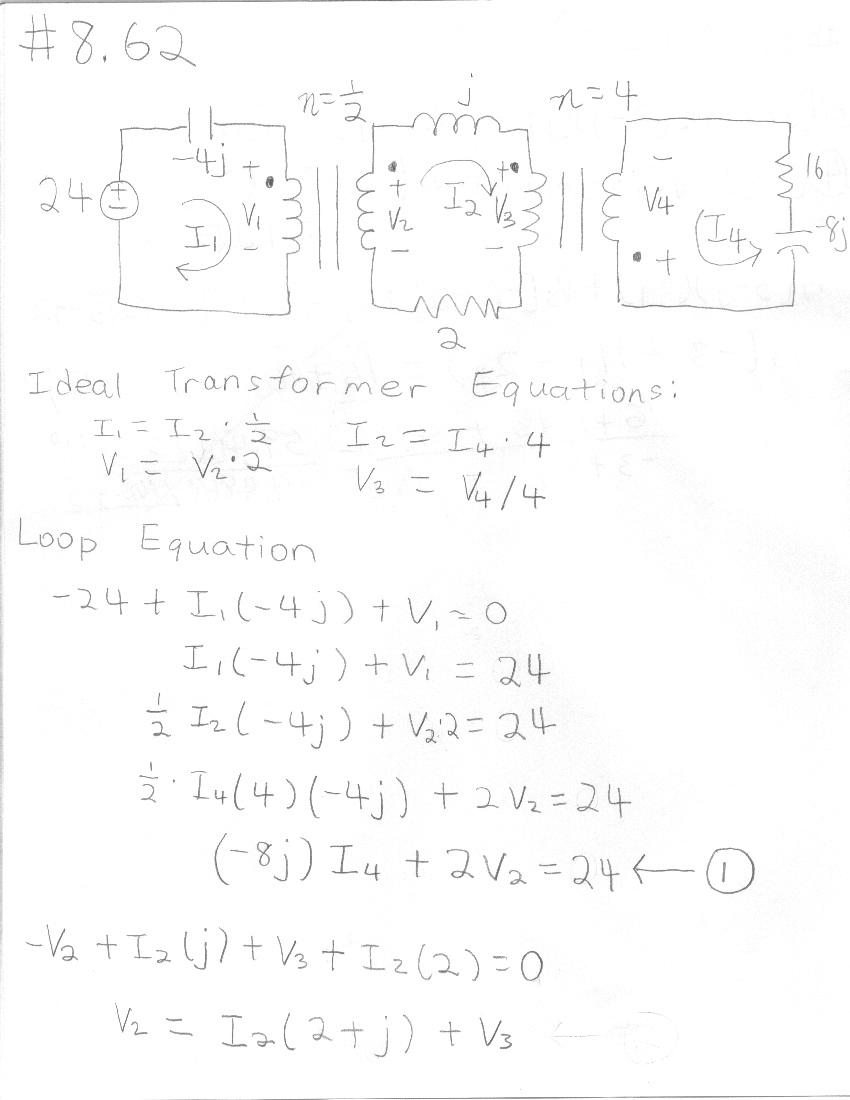 #8.62
n=1/2 j n=4
-4j + + +• - 16
24 ± I₁ V₁ V₂ I₂ V₃ V₄ I₄ -8j
- - - +
2
Ideal Transformer Equations:
I₁ = I₂ · 1/2 I₂ = I₄ · 4
V₁ = V₂·2 V₃ = V₄/4
Loop Equation
-24 + I₁(-4j) + V₁ = 0
I₁(-4j) + V₁ = 24
1/2 I₂(-4j) + V₂·2 = 24
1/2 · I₄(4)(-4j) + 2V₂ = 24
(-8j) I₄ + 2V₂ = 24 ← ①
-V₂ + I₂(j) + V₃ + I₂(2) = 0
V₂ = I₂(2+j) + V₃